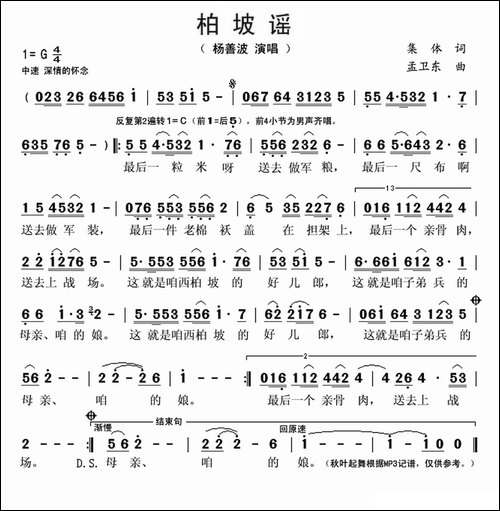 柏坡谣
（ 杨善波 演唱 ）
1=G 4/4
集 体 词
中速 深情的怀念
孟卫东 曲
( 023 26 6456 1 | 53 51 5 - | 067 64 3123 5 | 55 4·532 1 · 7 |
反复第2遍转1=C（前1=后5）。前4小节为男声齐唱。
635 76 5 - ) ‖: 55 4·532 1 · 76 | 556 232 1 · 76 | 66 5·643 2 · 6 |
最后一 粒 米 呀 送去 做军 粮， 最后一 尺 布 啊
13
1 5 4532 1 - | 076 553 556 2 | 6 5 35 227 6 | 016 112 442 4 |
送去 做军 装， 最后一件 老棉 袄 盖 在 担架 上， 最后一个 亲骨 肉，
2 2 1276 5 - | 5·553 556 1 · 5 | 2 5532 1 - | 6·661 612 3 · 6 |
送去 上战 场。 这就是咱西柏 坡 的 好 儿 郎， 这就是咱子弟 兵 的
6 6 1·3 32 | 5·553 556 1 · 5 | 2 2·17 6 - | 6·661 612 3 · 6 |
母亲、咱的 娘。 这就是咱西柏 坡 的 好 儿 郎， 这就是咱子弟 兵 的
2
56 2 - - | 2 2 - 26 | 1 - - - :‖ 016 112 442 4 | 4 264 · 53 |
母 亲、 咱 的 娘。 最后一个 亲骨 肉， 送去 上 战
渐慢 结束句 回原速
2 - - - :‖ 562 - - | 222 - 6 | 1 - - - | 1 - 1 0 0 ‖
场。 D.S. 母 亲、 咱 的 娘。（秋叶起舞根据MP3记谱，仅供参考。）